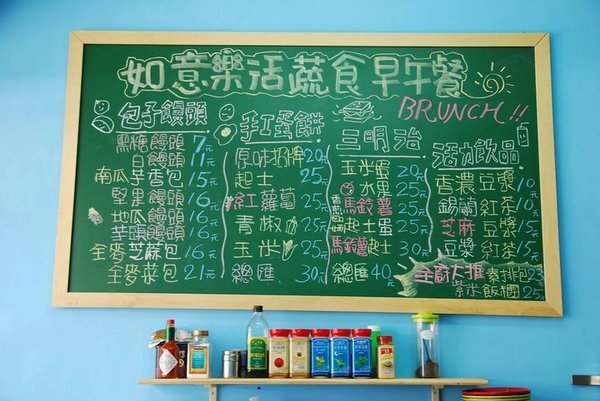 如意樂活蔬食早午餐
BRUNCH!!
包子饅頭
黑糖饅頭 7元
白饅頭 11元
南瓜芋香包 15元
堅果饅頭 16元
地瓜饅頭 16元
芋頭饅頭 16元
全麥芝麻包 16元
全麥菜包 21元
手工蛋餅
原味招牌 20元
起士 25元
紅蘿蔔 25元
青椒 25元
玉米 25元
總匯 30元
三明治
玉米蛋 20元
水果 25元
馬鈴薯 25元
起士蛋 25元
馬鈴薯蛋 30元
總匯 40元
活力飲品
香濃豆漿 10元
錫蘭紅茶 10元
芝麻豆漿 15元
豆漿紅茶 15元
全廚大推
素排包 23元
紫米飯糰 25元